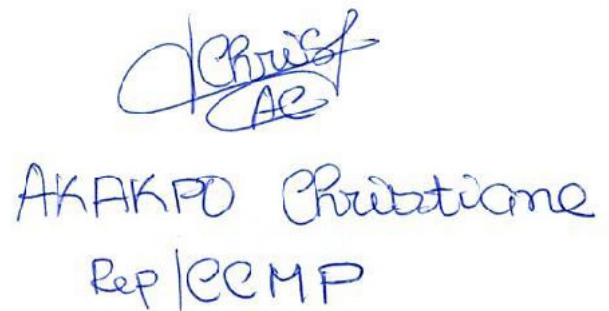 Christ
AC
AKAKPO Christiane
Rep/CCMP